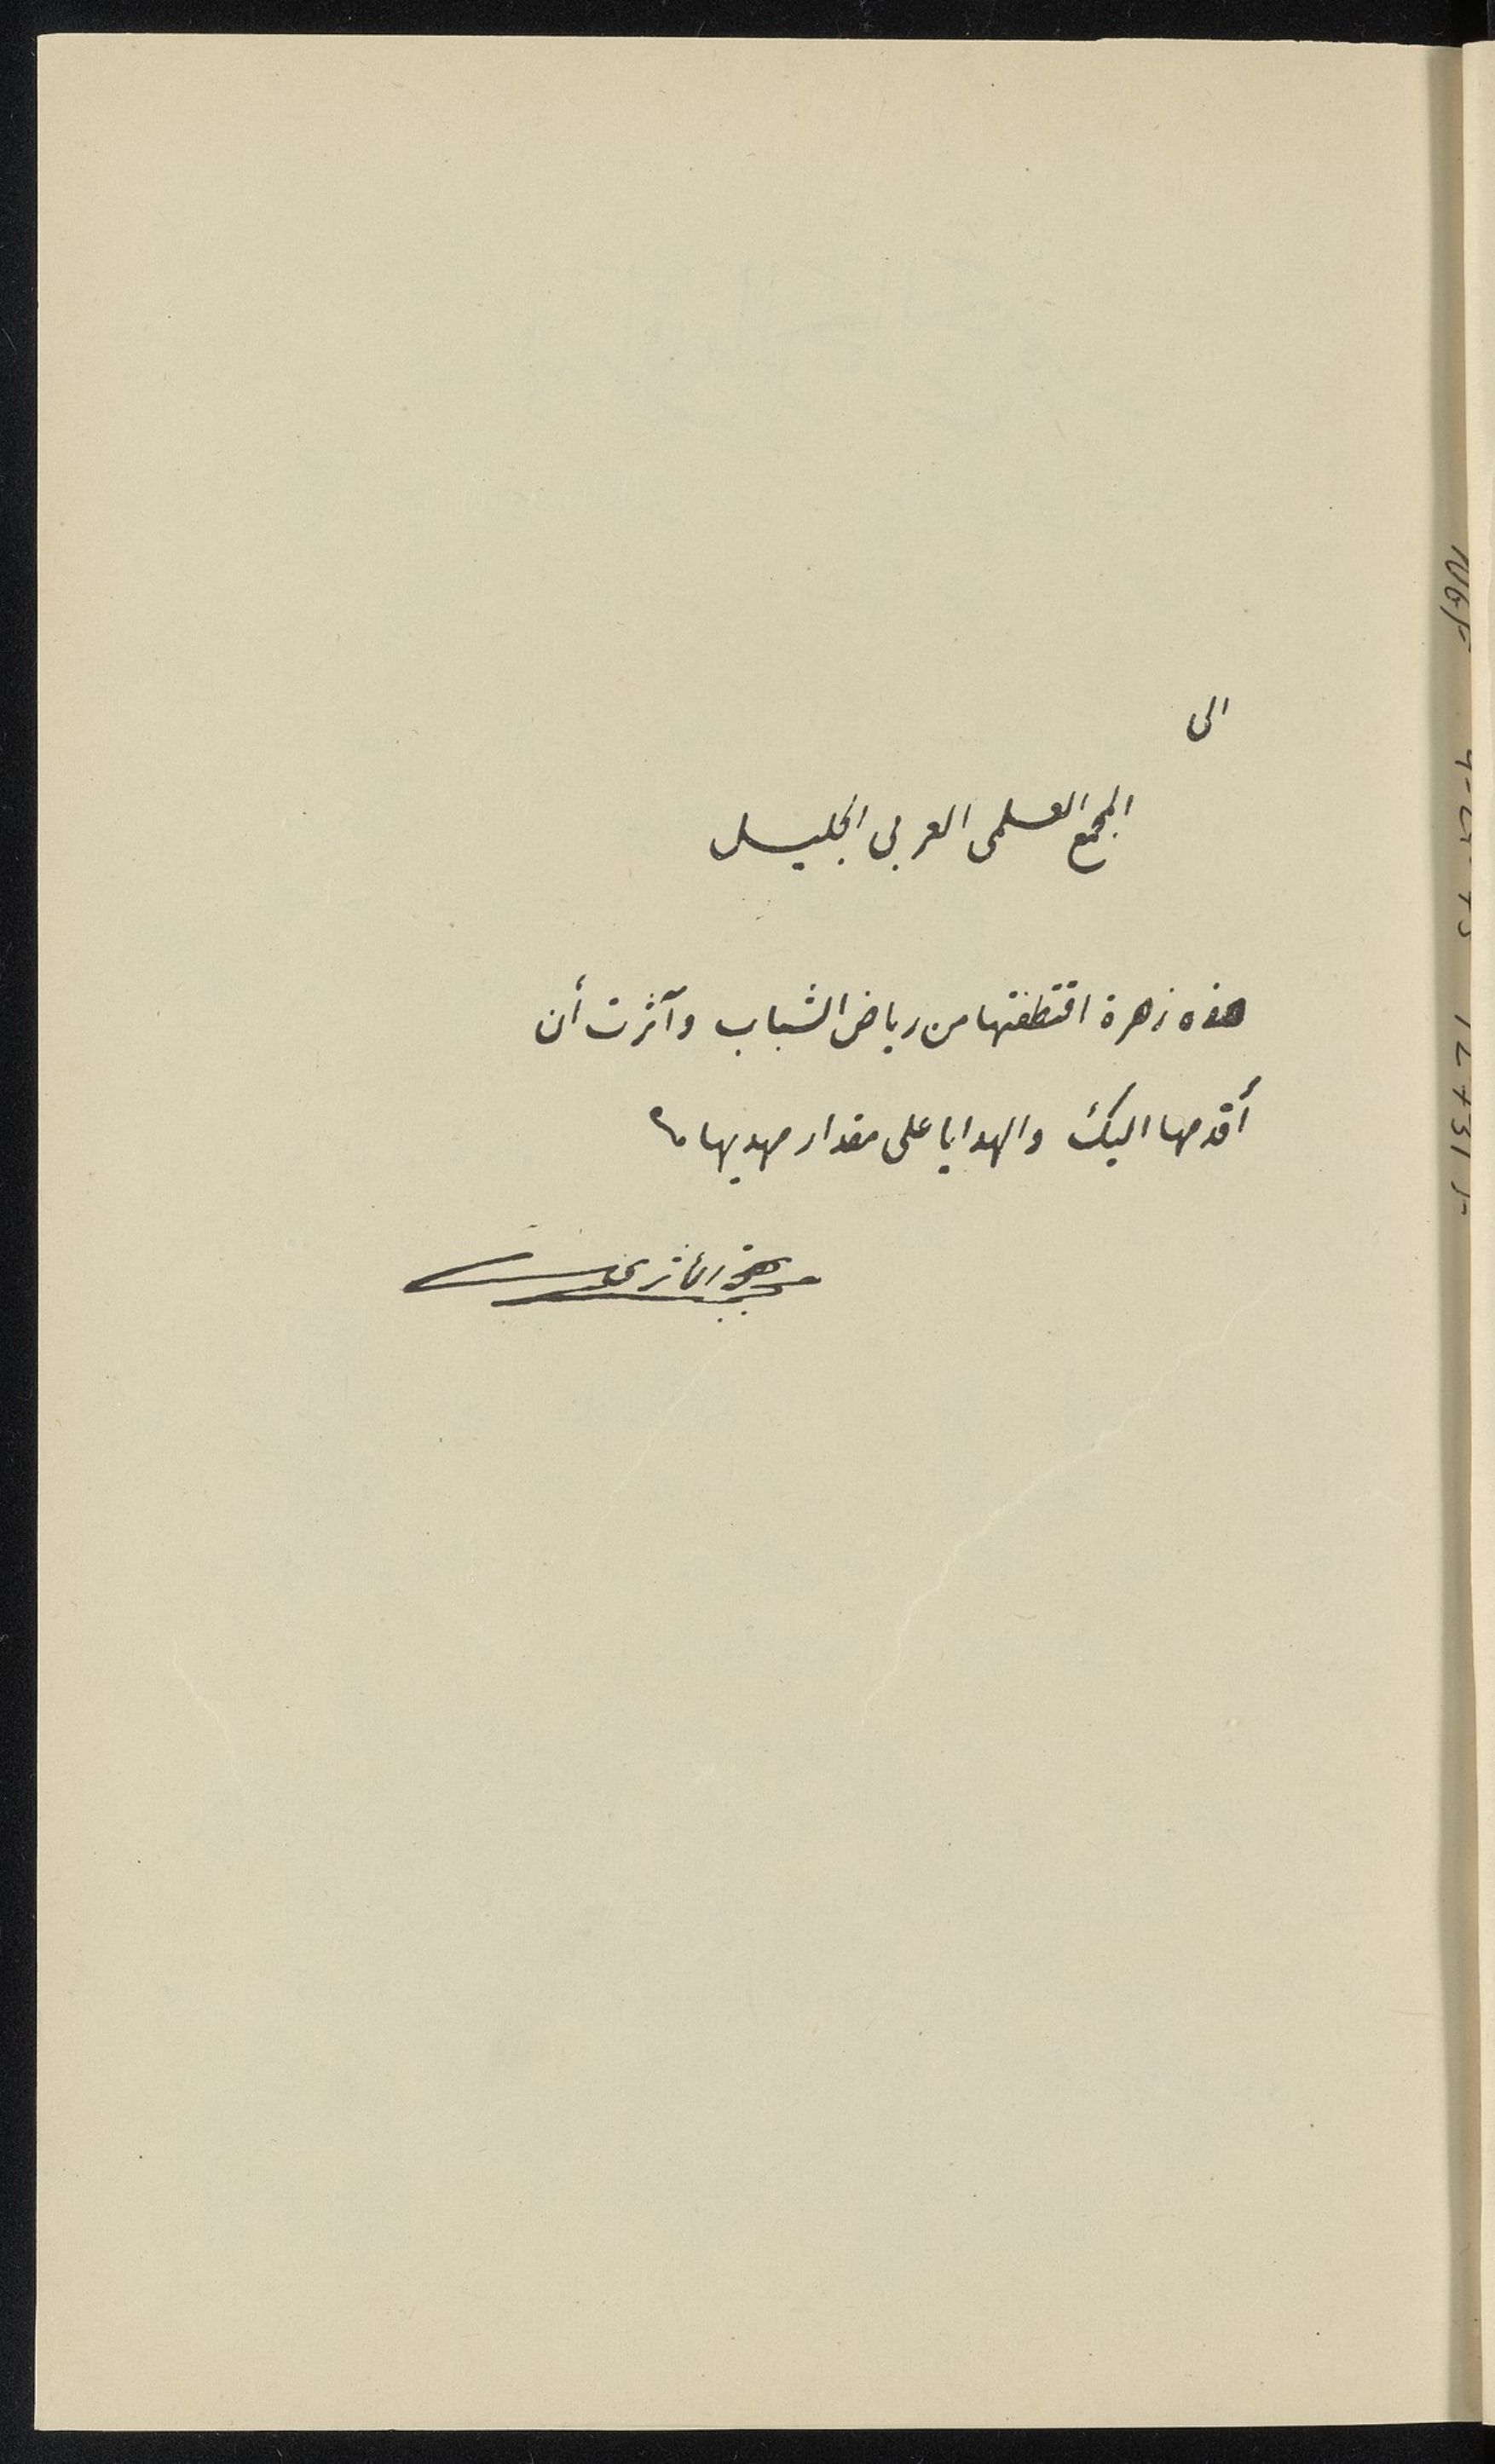 الى
المجمع العلمى العربى الجليل
هذه زهرة اقتطفتها من رياض الشباب وآثرت أن
أقدمها اليك والهدايا على مقدار مهديها